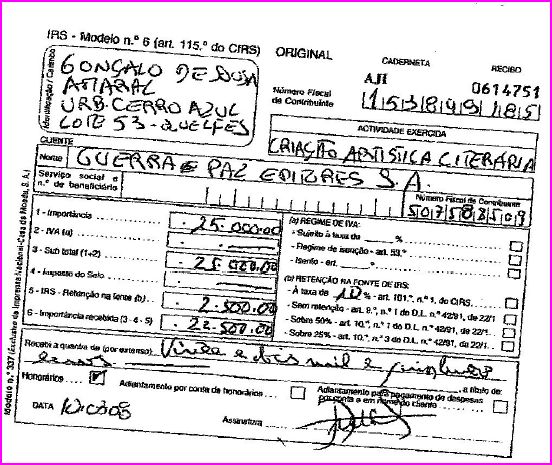 IRS - Modelo n.º 6 (art. 115.º do CIRS)
ORIGINAL
CADERNETA
RECIBO
AJI
0614751
Identificação / Carimbo
GONÇALO DE SOUSA
AMARAL
URB. CERRO AZUL
LOTE 53 - QUELFES
Número Fiscal
de Contribuinte
ACTIVIDADE EXERCIDA
CRIAÇÃO ARTISTICA LITERÁRIA
CLIENTE
Nome GUERRA E PAZ EDITORES S.A.
Serviço social e
n.º de beneficiário
Número Fiscal de Contribuinte
507588509
1 - Importância 25.000.00
2 - IVA (a)
3 - Sub total (1+2) 25.000.00
4 - Imposto do Selo
5 - IRS - Retenção na fonte (b) 2.500.00
6 - Importância recebida (3 - 4 - 5) 22.500.00
(a) REGIME DE IVA:
- Sujeito à taxa de %
- Regime de isenção - art. 53.º
- Isento - art.
(b) RETENÇÃO NA FONTE DE IRS:
- À taxa de 10 % - art. 101.º, n.º 1, do CIRS
- Sem retenção - art. 9.º, n.º 1 do D.L. n.º 42/91, de 22/1
- Sobre 50% - art. 10.º, n.º 1 do D.L. n.º 42/91, de 22/1
- Sobre 25% - art. 10.º, n.º 3 do D.L. n.º 42/91, de 22/1
Recebi a quantia de (por extenso) Vinte e dois mil e quinhentos
euros , a título de:
Honorários
Adiantamento por conta de honorários
Adiantamento para pagamento de despesas
por conta e em nome do cliente
DATA
Assinatura
Modelo n.º 337 (Exclusivo da Imprensa Nacional-Casa da Moeda, S. A.)